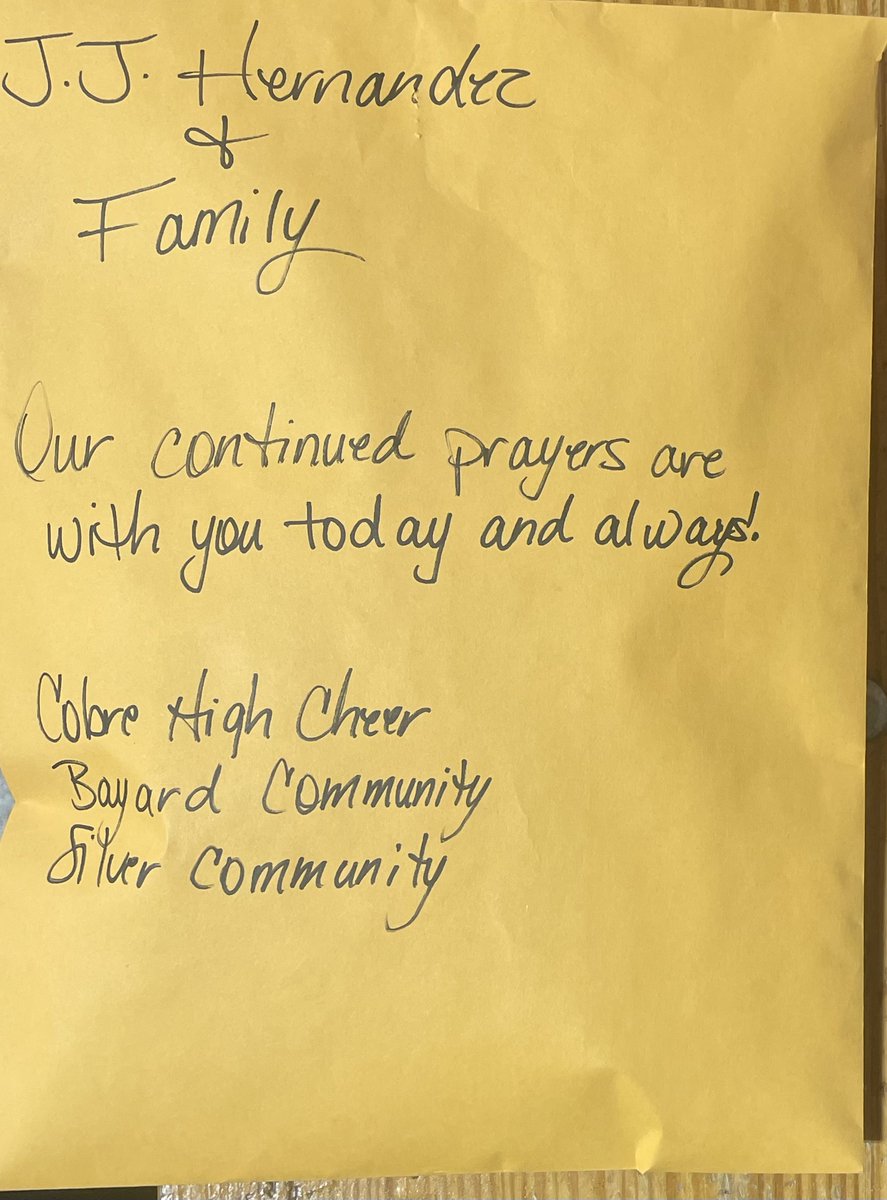 J.J. Hernandez
&
Family
Our continued prayers are
with you today and always!
Cobre High Cheer
Bayard Community
Silver Community